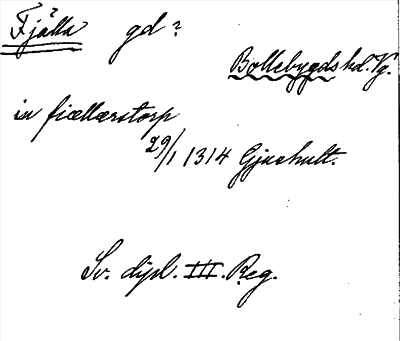 Fjälla gd?
Bollebygds hd. Vg.
in fiællærstorp
29/1 1314 Gjuahult.
Sv. dipl. III. Reg.